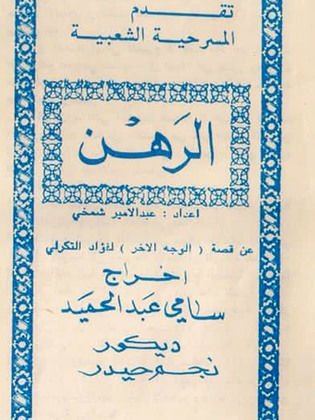 تقدم
المسرحية الشعبية
الرَهْن
اعداد : عبدالامير شمخي
عن قصة ( الوجه الاخر ) لفؤاد التكرلي
اخراج
سامي عبد الحميد
ديكور
نجم حيدر